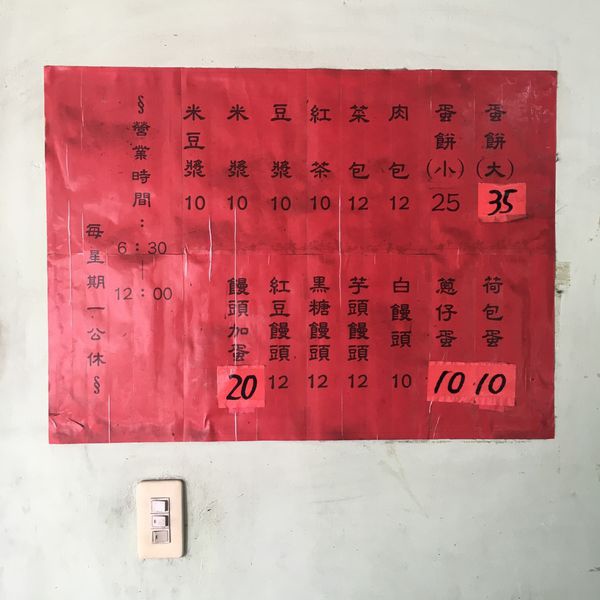 蛋餅(大) 35
蛋餅(小) 25
肉包 12
菜包 12
紅茶 10
豆漿 10
米漿 10
米豆漿 10
荷包蛋 10
蔥仔蛋 10
白饅頭 10
芋頭饅頭 12
黑糖饅頭 12
紅豆饅頭 12
饅頭加蛋 20
§營業時間：
6：30｜12：00
每星期一公休§